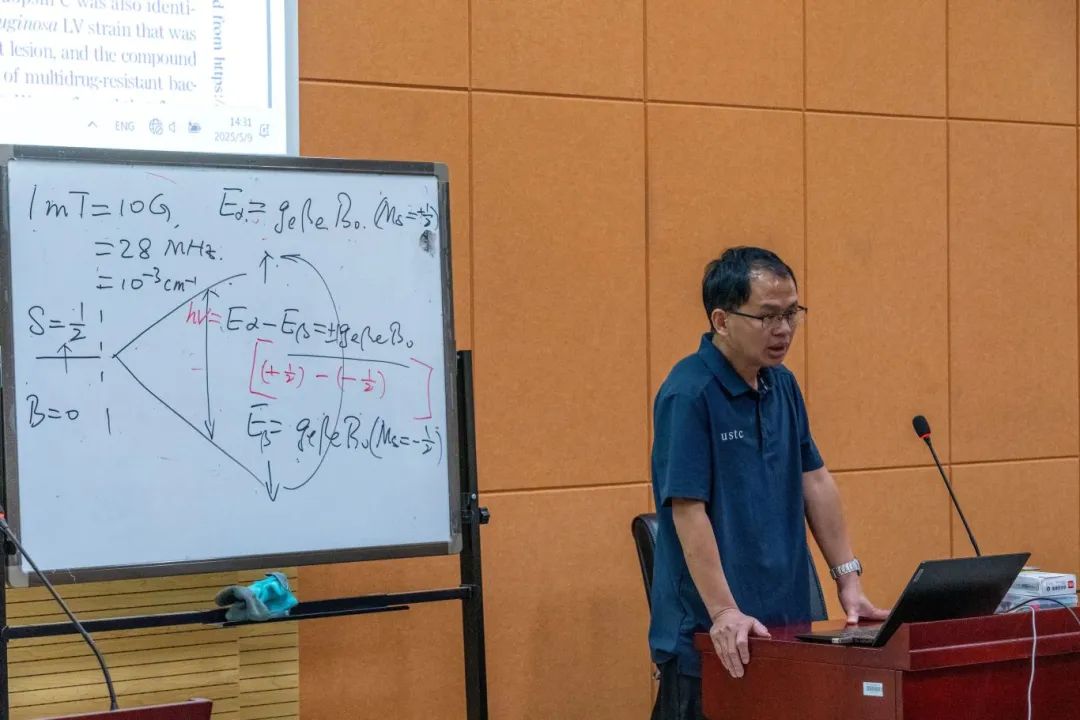 C was also identi-
uginosa LV strain that was
t lesion, and the compound
of multidrug-resistant bac-
d from https:/
ENG
14:31
2025/5/9
1mT=10G
=28 MHz.
=10⁻³cm⁻¹
Eα=geβeB₀.(Ms=+½)
S=½
hν=Eα-Eβ=±geβeB₀
[(+½)-(-½)]
B=0
Eβ=geβeB₀(Ms=-½)
ustc